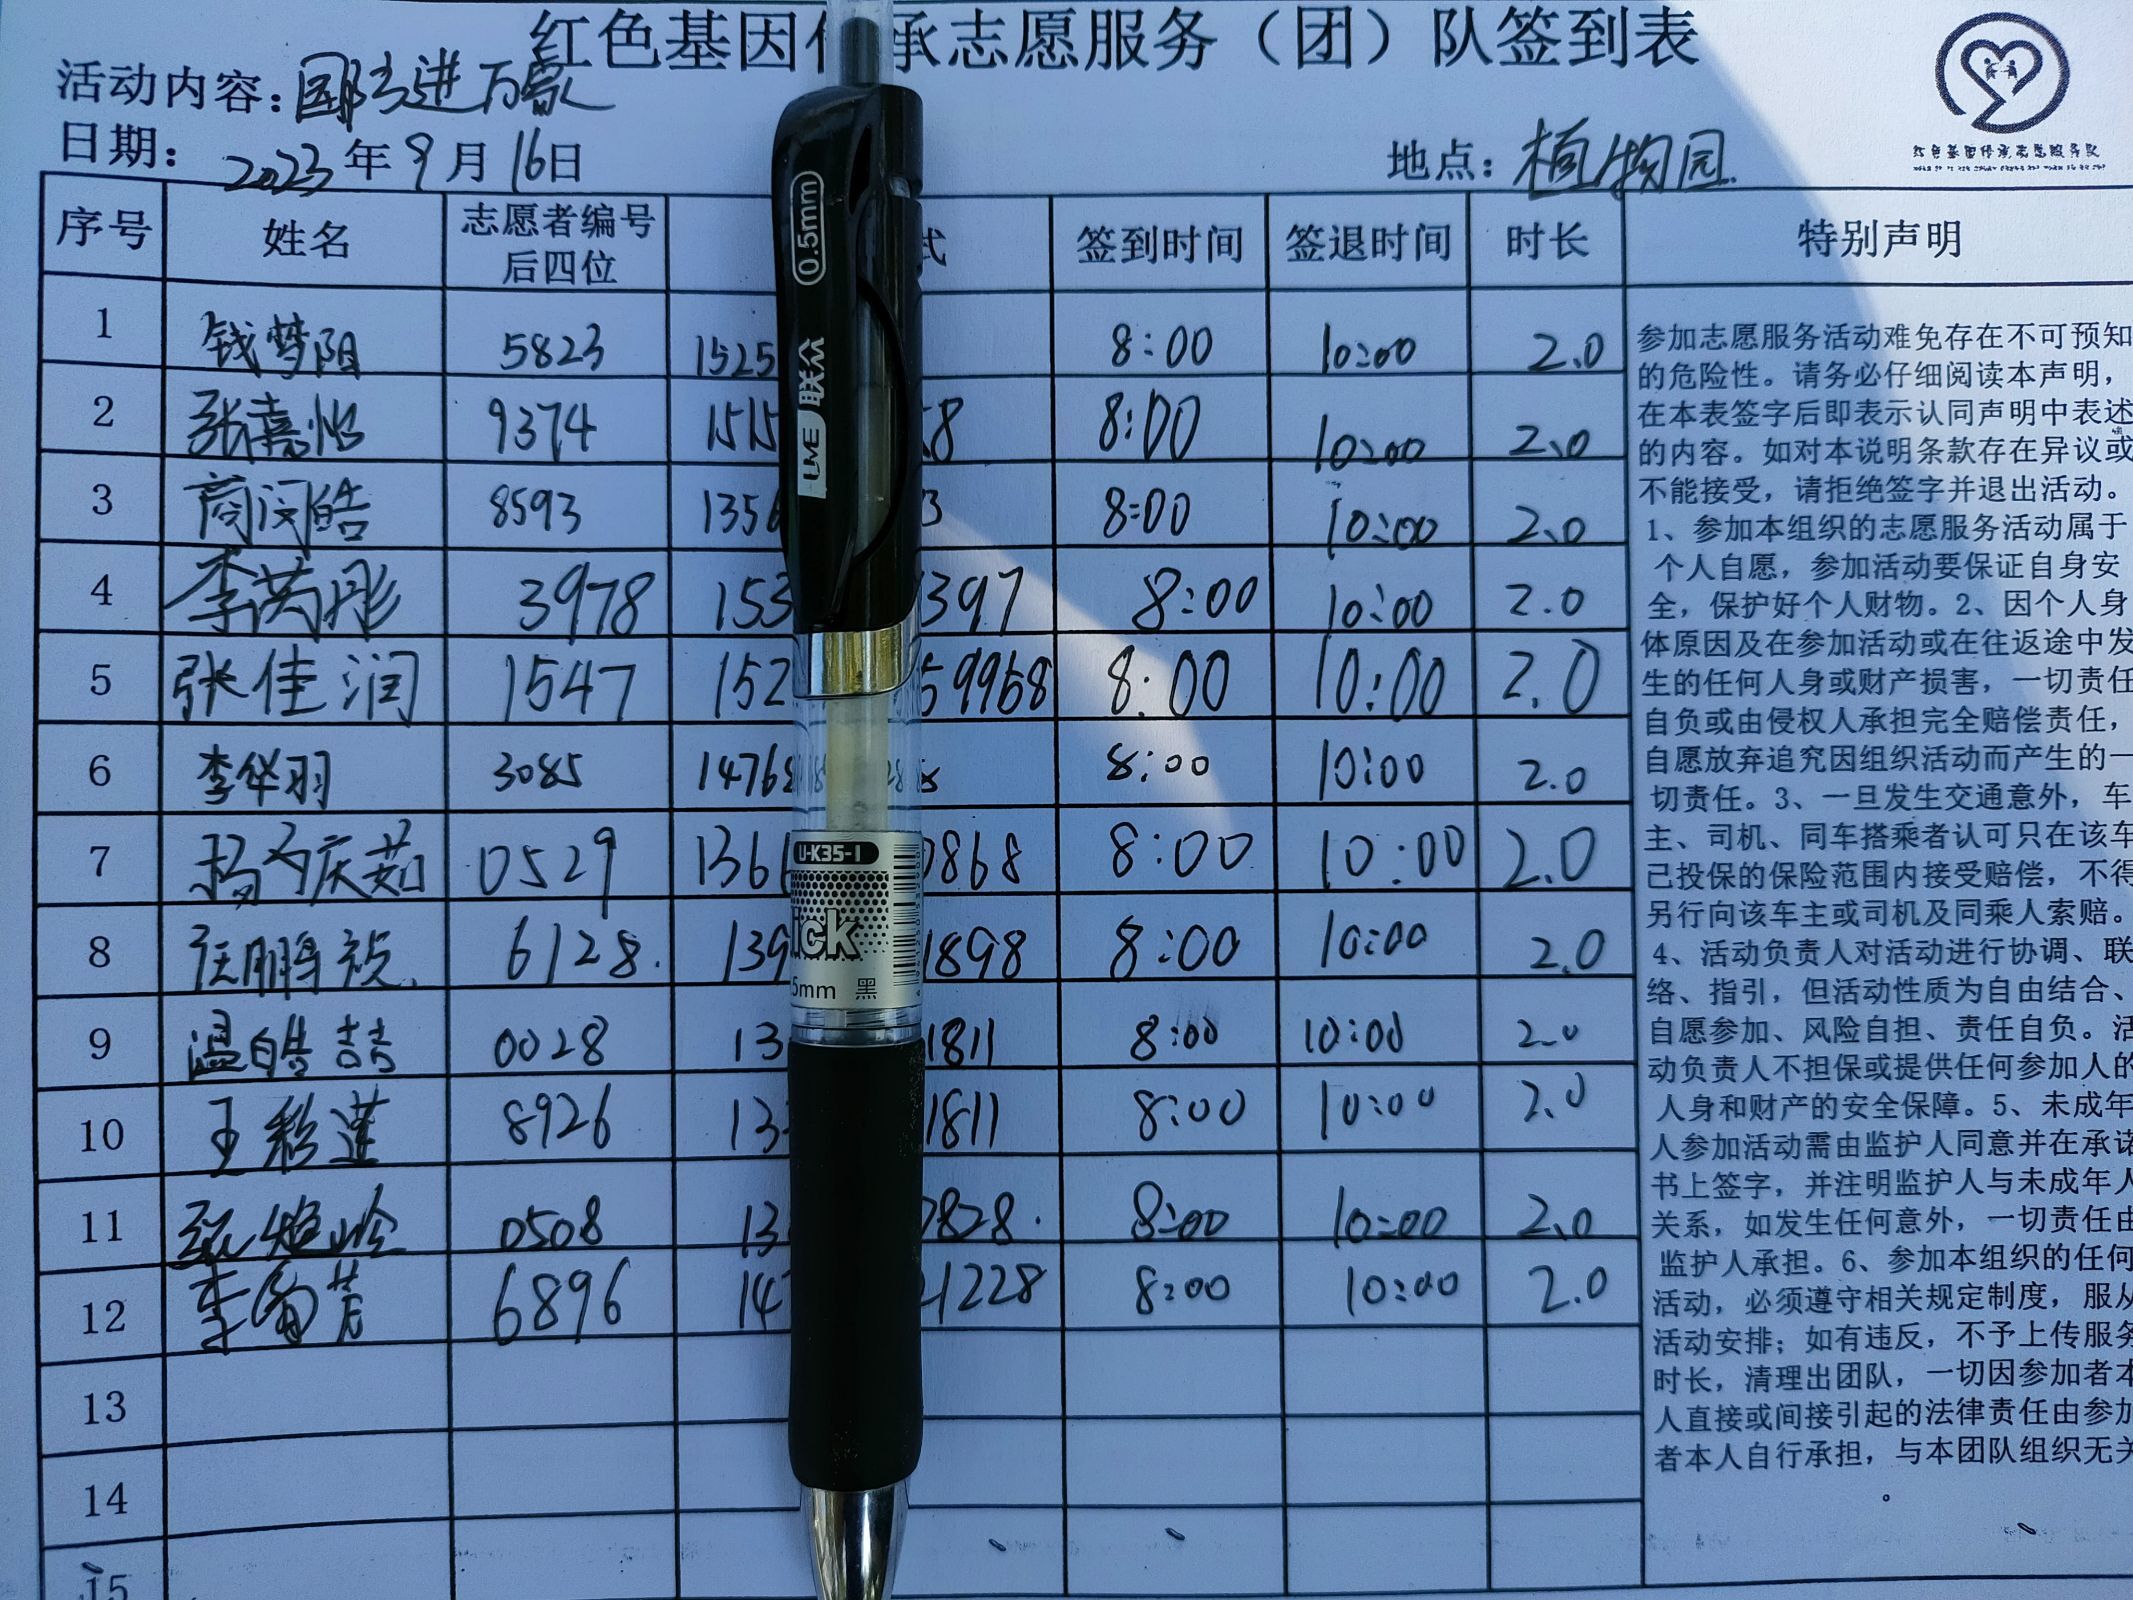 红色基因 承志愿服务（团）队签到表
活动内容：国防进万家
日期：2023年9月16日 地点：植物园
红色基因传承志愿服务队
序号 姓名 志愿者编号后四位 式 签到时间 签退时间 时长 特别声明
1 钱梦阳 5823 1525 8:00 10:00 2.0
2 张嘉怡 9374 1515 58 8:00 10:00 2.0
3 商闵皓 8593 1356 3 8:00 10:00 2.0
4 李芮彤 3978 153 397 8:00 10:00 2.0
5 张佳润 1547 152 59968 8:00 10:00 2.0
6 李华羽 3085 1476 8:00 10:00 2.0
7 杨庆茹 0529 136 0868 8:00 10:00 2.0
8 6128. 139 1898 8:00 10:00 2.0
9 温皓喆 0028 13 1811 8:00 10:00 2.0
10 王彩莲 8926 13 1811 8:00 10:00 2.0
11 0508 13 2828. 8:00 10:00 2.0
12 李 芳 6896 14 21228 8:00 10:00 2.0
13
14
15
参加志愿服务活动难免存在不可预知
的危险性。请务必仔细阅读本声明，
在本表签字后即表示认同声明中表述
的内容。如对本说明条款存在异议或
不能接受，请拒绝签字并退出活动。
1、参加本组织的志愿服务活动属于
个人自愿，参加活动要保证自身安
全，保护好个人财物。2、因个人身
体原因及在参加活动或在往返途中发
生的任何人身或财产损害，一切责任
自负或由侵权人承担完全赔偿责任，
自愿放弃追究因组织活动而产生的一
切责任。3、一旦发生交通意外，车
主、司机、同车搭乘者认可只在该车
已投保的保险范围内接受赔偿，不得
另行向该车主或司机及同乘人索赔。
4、活动负责人对活动进行协调、联
络、指引，但活动性质为自由结合、
自愿参加、风险自担、责任自负。活
动负责人不担保或提供任何参加人的
人身和财产的安全保障。5、未成年
人参加活动需由监护人同意并在承诺
书上签字，并注明监护人与未成年人
关系，如发生任何意外，一切责任由
监护人承担。6、参加本组织的任何
活动，必须遵守相关规定制度，服从
活动安排；如有违反，不予上传服务
时长，清理出团队，一切因参加者本
人直接或间接引起的法律责任由参加
者本人自行承担，与本团队组织无关
。
0.5mm
LIVE 联众
U-K35-1
ick
5mm 黑